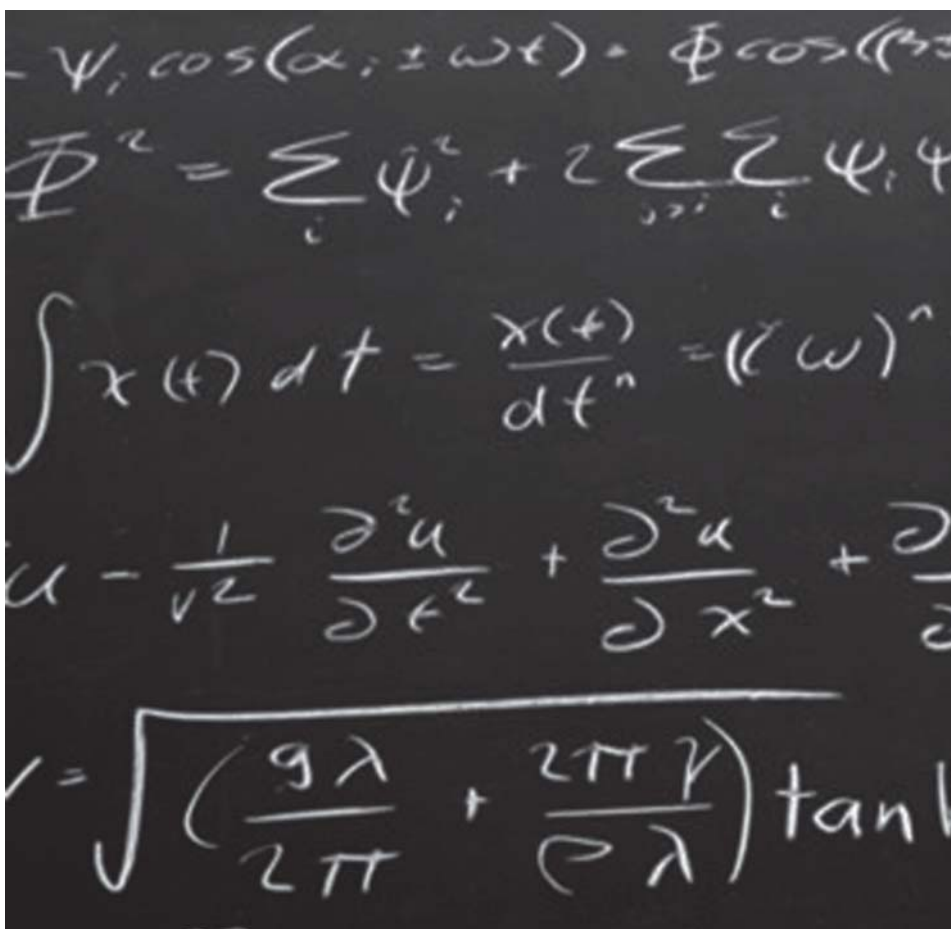 - Ψᵢ cos(αᵢ ± ωt) = Φ cos((β ±
Φ² = Σᵢ ψ̂ᵢ² + 2 Σⱼ>ᵢ Σᵢ Ψᵢ Ψ
∫ x(t) dt = x(t)/dtⁿ = (iω)ⁿ
u - 1/v² ∂²u/∂t² + ∂²u/∂x² + ∂/∂
v = √(gλ/2π + 2πγ/ρλ) tanh